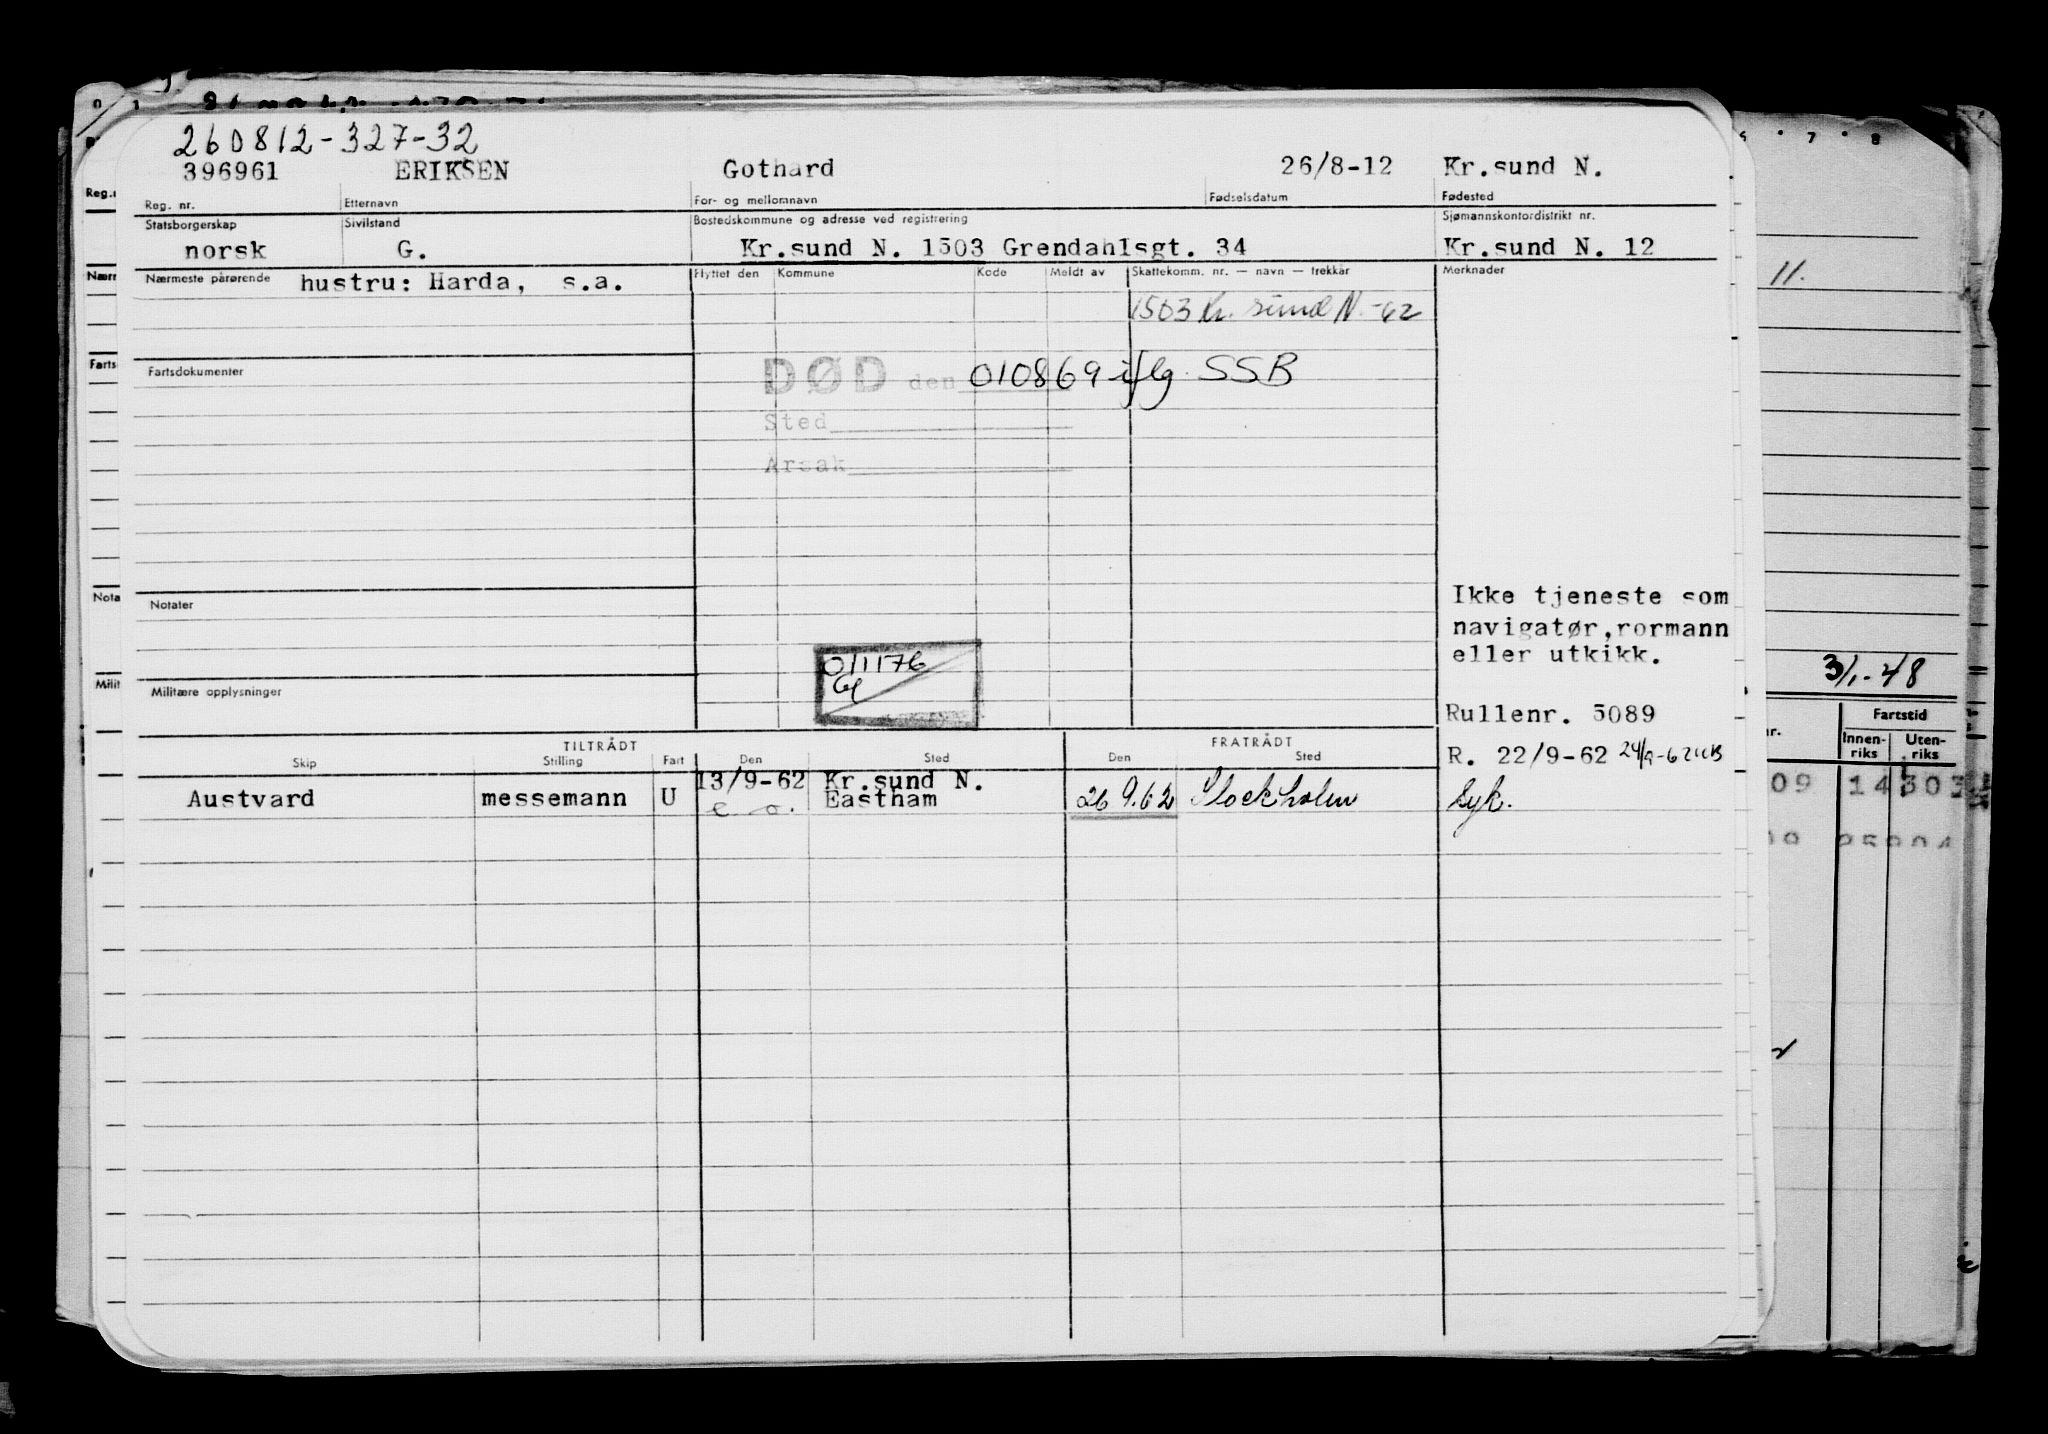 260812-327-32
396961 ERIKSEN Gothard 26/8-12 Kr.sund N.
Reg. nr. Etternavn For- og mellomnavn Fødselsdatum Fødested
Statsborgerskap Sivilstand Bostedskommune og adresse ved registrering Sjømannskontordistrikt nr.
norsk G. Kr.sund N. 1503 Grendahlsgt. 34 Kr.sund N. 12
Nærmeste pårørende hustru: Harda, s.a. Flyttet den Kommune Kode Meldt av Skattekomm. nr. — navn — trekkår Merknader
1503 Kr. sund N. -62
Fartsdokumenter
DØD den 010869 iflg SSB
Sted
Årsak
Ikke tjeneste som
Notater
navigatør,rormann
eller utkikk.
011176
Militære opplysninger
Rullenr. 5089
TILTRÅDT FRATRÅDT
Skip Stilling Fart Den Sted Den Sted
R. 22/9-62
13/9-62 Kr.sund N.
Austvard messemann U e.o. Eastham 26 9.62 Stockholm syk.
11.
3/1-48
Fartstid
Innen-
riks
Uten-
riks
09 14 303